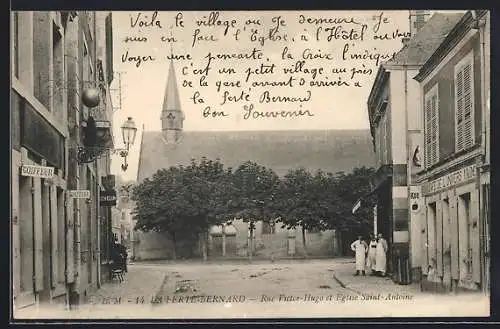 Voila le village ou je demeure Je
suis en face l'Eglise, à l'Hôtel ou vous
voyez une pencarte, la Croix l'indique
C'est un petit village au près
de la gare, avant d'arriver à
la ferté Bernard
bon Souvenir
COIFFEUR
E.M. - 14 LA FERTÉ-BERNARD — Rue Victor-Hugo et Église Saint-Antoine